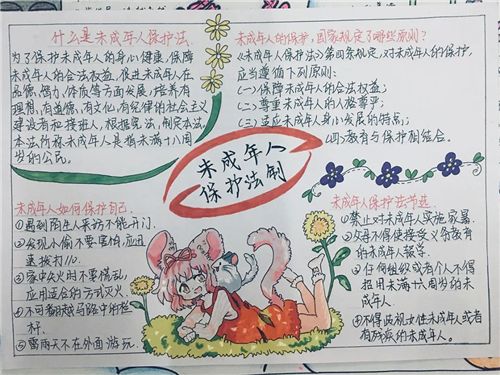 什么是未成年人保护法
为了保护未成年人的身心健康,保障
未成年人的合法权益,促进未成年人在
品德、智力、体质等方面发展,培养有
理想、有道德、有文化、有纪律的社会主义
建设者和接班人,根据宪法,制定本法。
本法所称未成年人是指未满十八周
岁的公民。
未成年人的保护,国家规定了哪些原则?
《未成年人保护法》第四条规定,对未成年人的保护,
应当遵循下列原则:
(一)保障未成年人的合法权益;
(二)尊重未成年人的人格尊严;
(三)适应未成年人身心发展的特点;
(四)教育与保护相结合。
未成年人
保护法制
未成年人如何保护自己
①遇到陌生人来访不能开门。
②发现小偷不要害怕,应迅
速拨打110.
③家中失火时不要慌乱,
应用适合的方式灭火。
④不可翻越马路中的栏
杆.
⑤雷雨天不在外面游玩.
未成年人保护法节选
①禁止对未成年实施家暴。
②父母不得使接受义务教育
的未成年人辍学.
③任何组织或者个人不得
招用未满十六周岁的未
成年人.
④不得歧视女性未成年人或者
有残疾的未成年人。